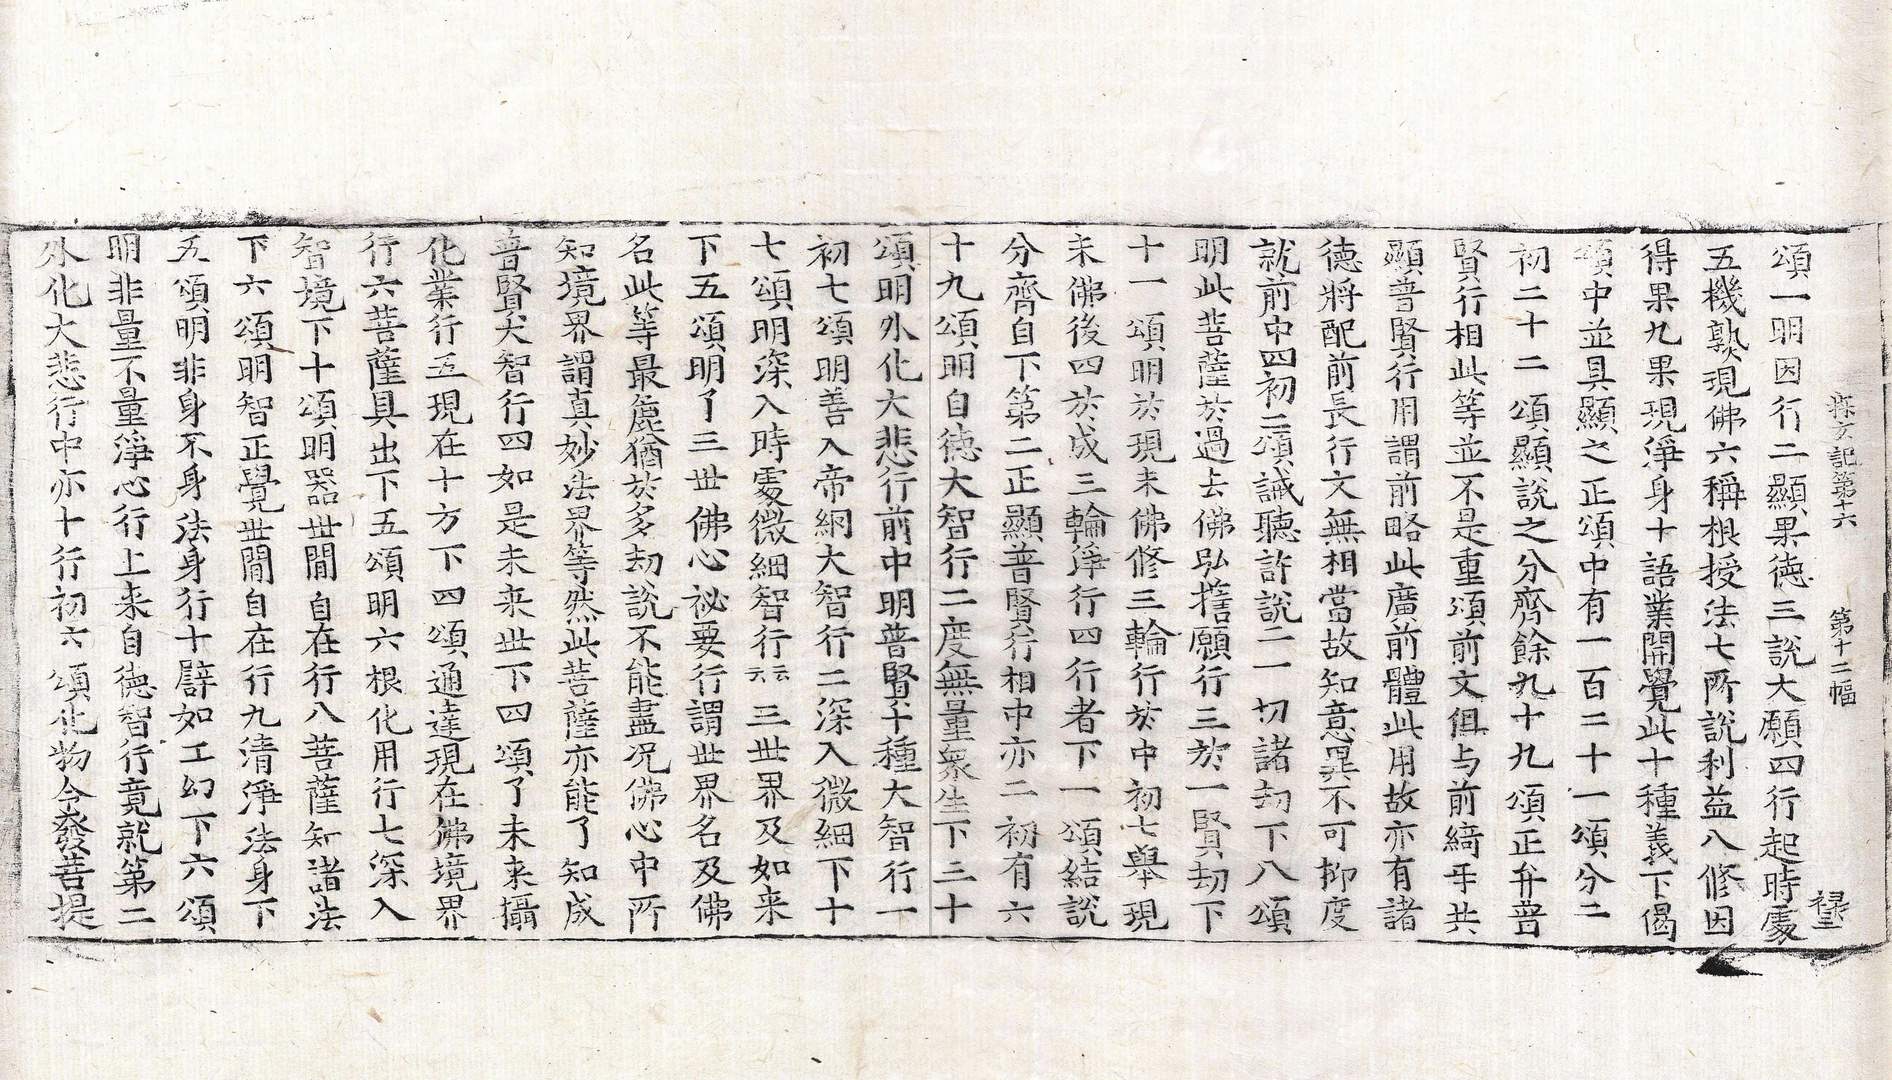 探玄記第十六　第十二幅
頌一明因行二顯果德三說大願四行起時處
五機熟現佛六稱根授法七所說利益八修因
得果九果現淨身十語業開覺此十種義下偈
頌中並具顯之正頌中有一百二十一頌分二
初二十二頌顯說之分齊餘九十九頌正弁普
賢行相此等並不是重頌前文俱与前綺乎共
顯普賢行用謂前略此廣前體此用故亦有諸
德將配前長行文無相當故知意異不可抑度
就前中四初二頌誡聽許說二一切諸刧下八頌
明此菩薩於過去佛弘擔願行三於一賢刧下
十一頌明於現未佛修三輪行於中初七舉現
未佛後四於成三輪淨行四行者下一頌結說
分齊自下第二正顯普賢行相中亦二初有六
十九頌明自德大智行二度無量衆生下三十
頌明外化大悲行前中明普賢十種大智行一
初七頌明善入帝網大智行二深入微細下十
七頌明深入時處微細智行云云三世界及如来
下五頌明了三世佛心祕要行謂世界名及佛
名此等最麁猶於多刧說不能盡况佛心中所
知境界謂真妙法界等然此菩薩亦能了知成
普賢大智行四如是未来世下四頌了未来攝
化業行五現在十方下四頌通達現在佛境界
行六菩薩具出下五頌明六根化用行七深入
智境下十頌明器世間自在行八菩薩知諸法
下六頌明智正覺世間自在行九清淨法身下
五頌明非身不身法身行十譬如工幻下六頌
明非量不量淨心行上来自德智行竟就第二
外化大悲行中亦十行初六頌化物令發菩提